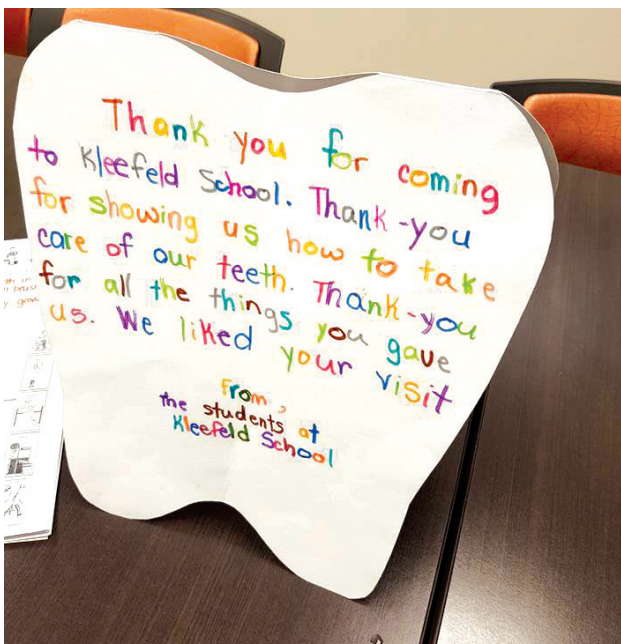 Thank you for coming
to Kleefeld School. Thank-you
for showing us how to take
care of our teeth. Thank-you
for all the things you gave
us. We liked your visit
from,
the students at
Kleefeld School